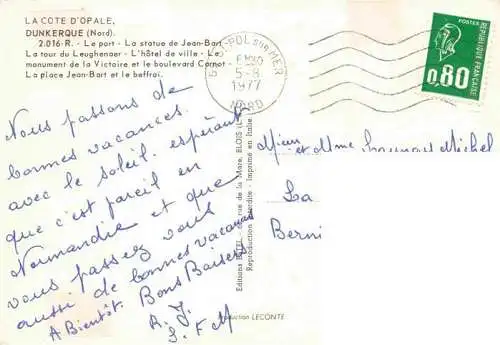 LA COTE D'OPALE,
DUNKERQUE (Nord).
2.016-R. - Le port - La statue de Jean-Bart
La tour du Leughenaer - L'hôtel de ville - Le
monument de la Victoire et le boulevard Carnot
La place Jean-Bart et le beffroi.
POL SUR MER
5-8
1977
NORD
POSTES
REPUBLIQUE FRANÇAISE
0,80
Nous passons de
bonnes vacances
avec le soleil. espérant
que c'est pareil en
Normandie et que
vous passez vous
aussi de bonnes vacances
A Bientôt. Bons Baisers
R. J.
S. F M
Editions rue de la Mare, BLOIS
Reproduction interdite - Imprimé en Italie
LECONTE
et Mme Michel
La
Berni